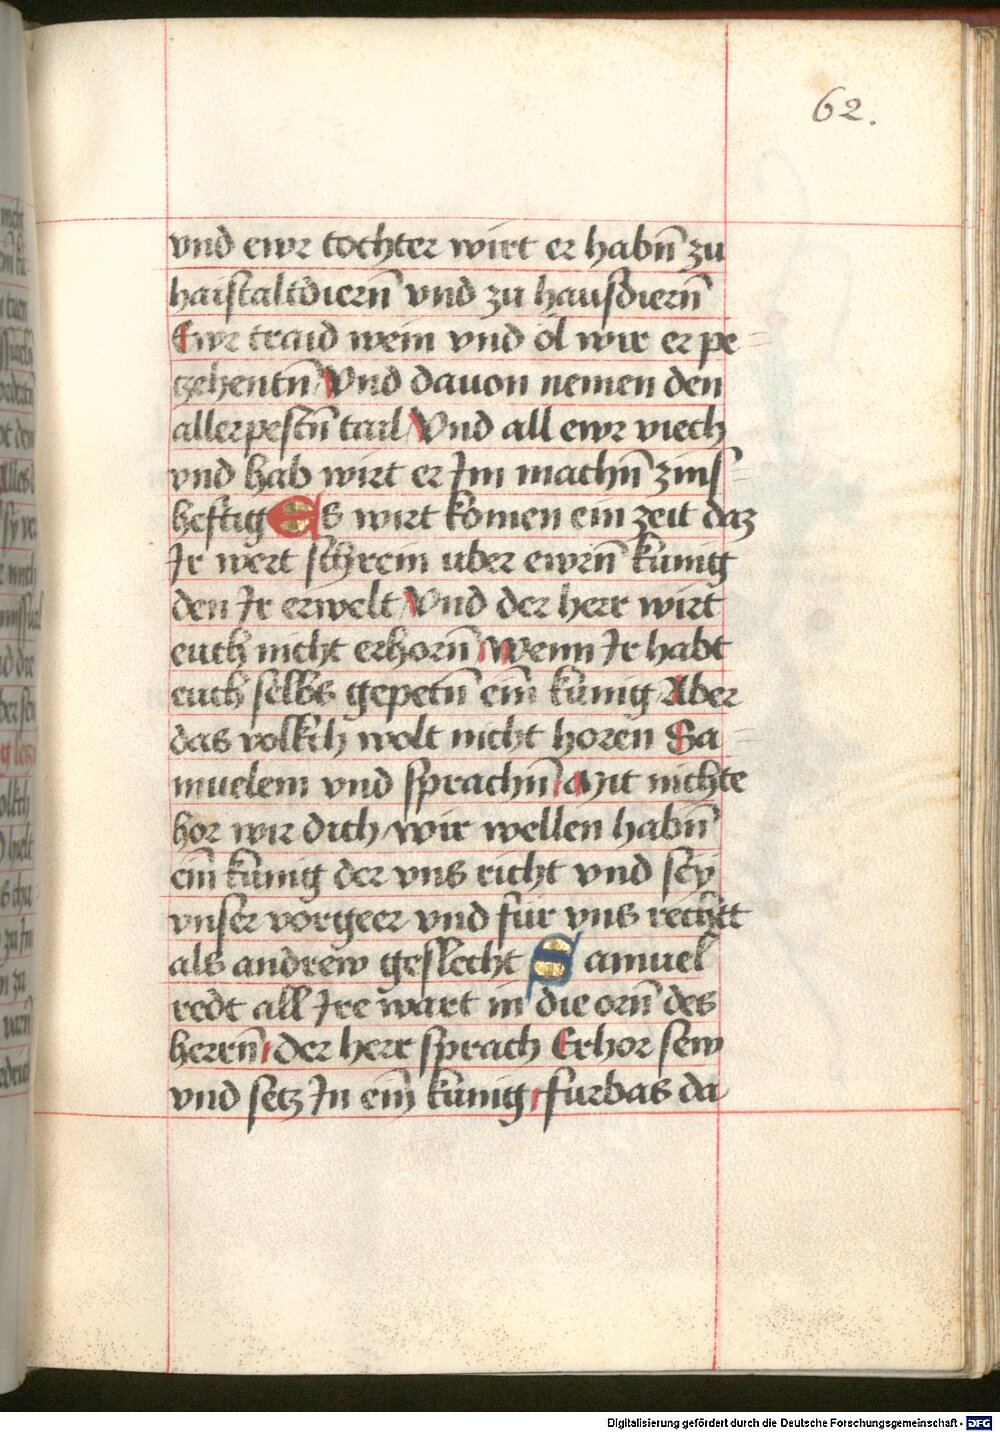 62.
vnd ewr tochter wirt er habn̄ zu
haistaltdiern̄ vnd zu hausdiern̄
Ewr traid wein vnd öl wir er pe=
zehentn̄ / Vnd dauon nemen den
allerpestn̄ tail / Vnd all ewr viech
vnd hab wirt er Im machn̄ zins=
heftig Es wirt komen ein zeit daz
Ir wert schrein uber ewrn̄ kunig
den Ir erwelt / Vnd der herr wirt
euch nicht erhorn̄ / Wenn Ir habt
euch selbs gepetn̄ ein̄ kunig Aber
das volkch wolt nicht horen Sa=
muelem vnd sprachn̄ / Mit nichte
hor wir dich / wir wellen habn̄
ein̄ kunig der vns richt vnd sey
vnser vorgeer vnd für vns rechtt
als andrew geslecht Samuel
redt all Ire wart in die orn̄ des
herrn̄ / der herr sprach Erhor sew
vnd setz In ein̄ kunig / furbas da
Digitalisierung gefördert durch die Deutsche Forschungsgemeinschaft - DFG